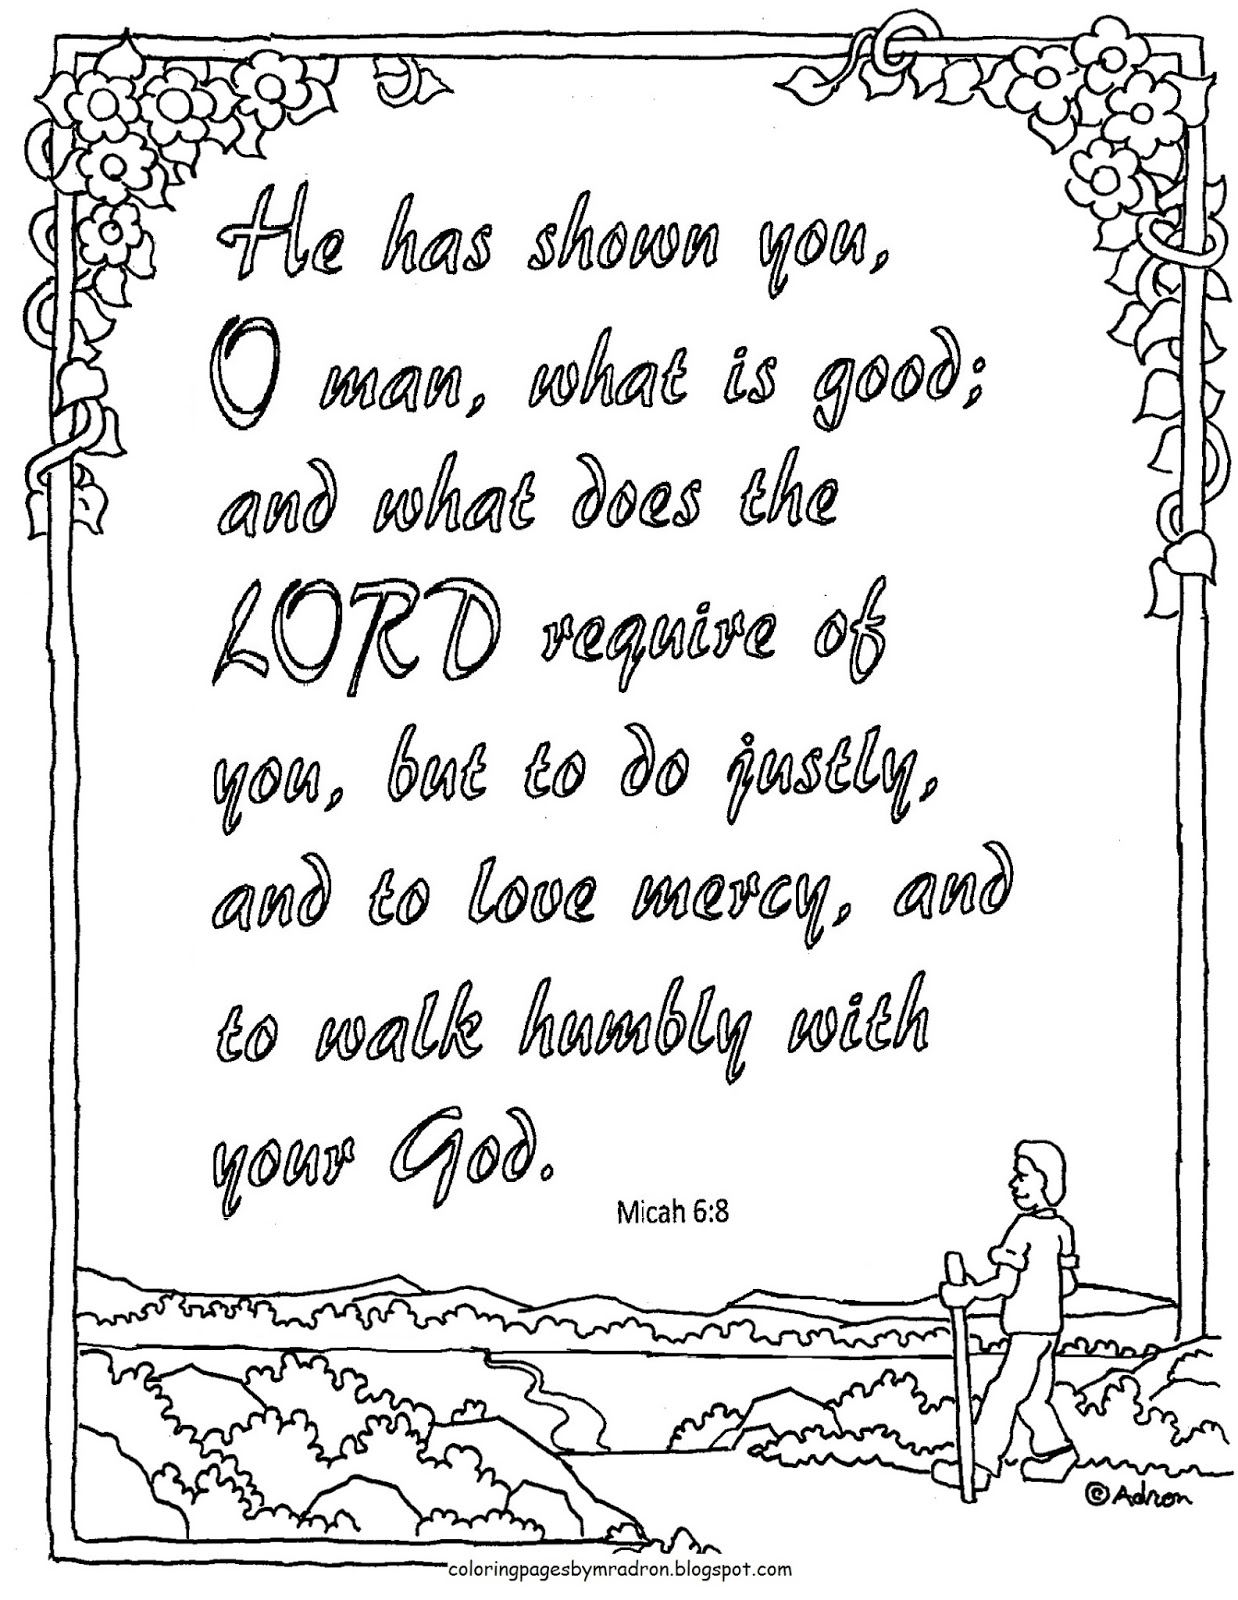 He has shown you,
O man, what is good;
and what does the
LORD require of
you, but to do justly,
and to love mercy, and
to walk humbly with
your God.
Micah 6:8
©Adron
coloringpagesbymradron.blogspot.com